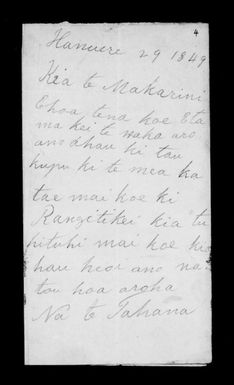 4
Hanuere 29 1849
Kia te Makarini
Ehoa, tena koe Eta
ma kei te waha aro
ano ahau ki tau
kupu ki te mea ka
tae mai koe ki
Rangitikei kia tu
hituhi mai koe ki
hau heoi ano na
tou hoa aroha
Na te Tahana